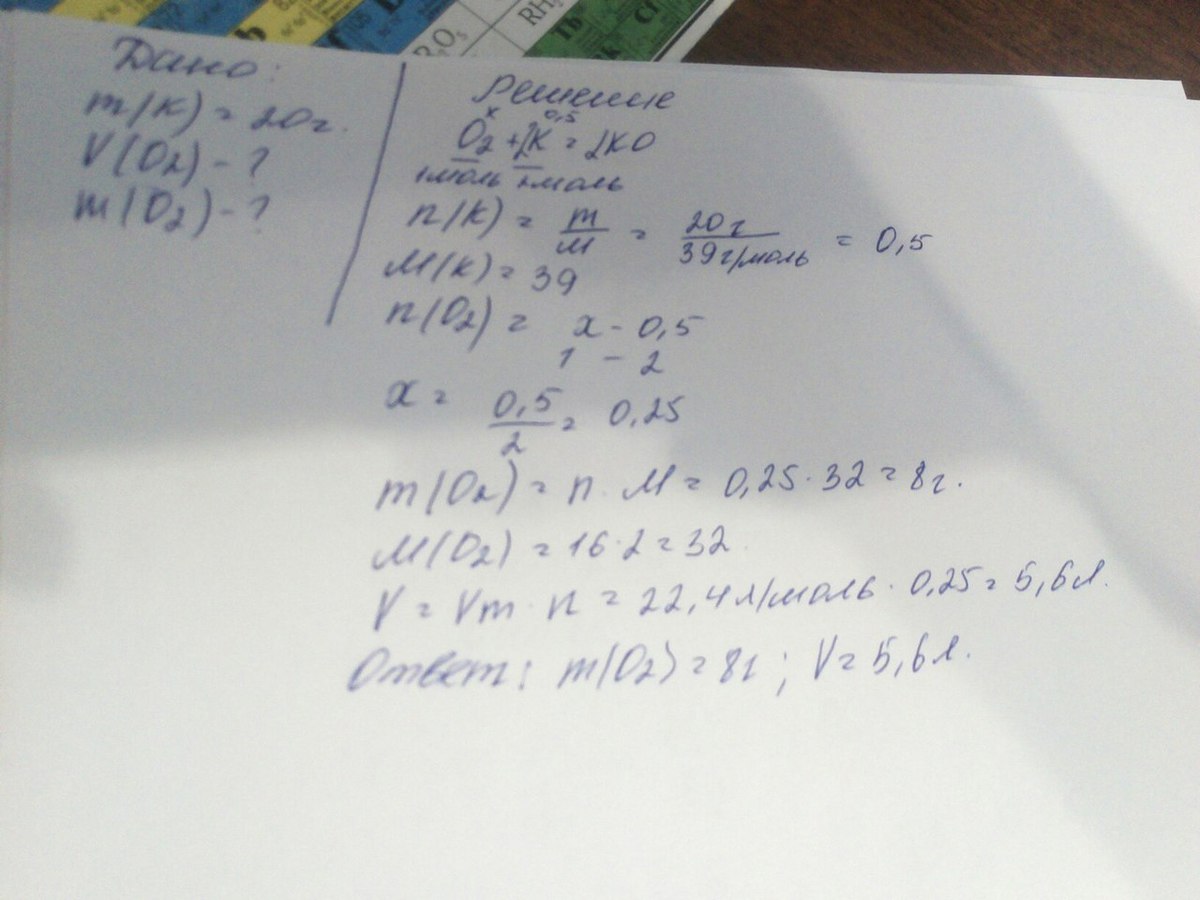 Дано:
m(K) = 20г.
V(O2) - ?
m(O2) - ?
Решение
x 0,5
O2 + 2K = 2KO
1моль 2моль
n(K) = m/M = 20г/39г/моль = 0,5
M(K) = 39
n(O2) = x - 0,5
1 - 2
x = 0,5/2 = 0,25
m(O2) = n · M = 0,25 · 32 = 8г.
M(O2) = 16 · 2 = 32
V = Vm · n = 22,4л/моль · 0,25 = 5,6л.
Ответ: m(O2) = 8г ; V = 5,6л.